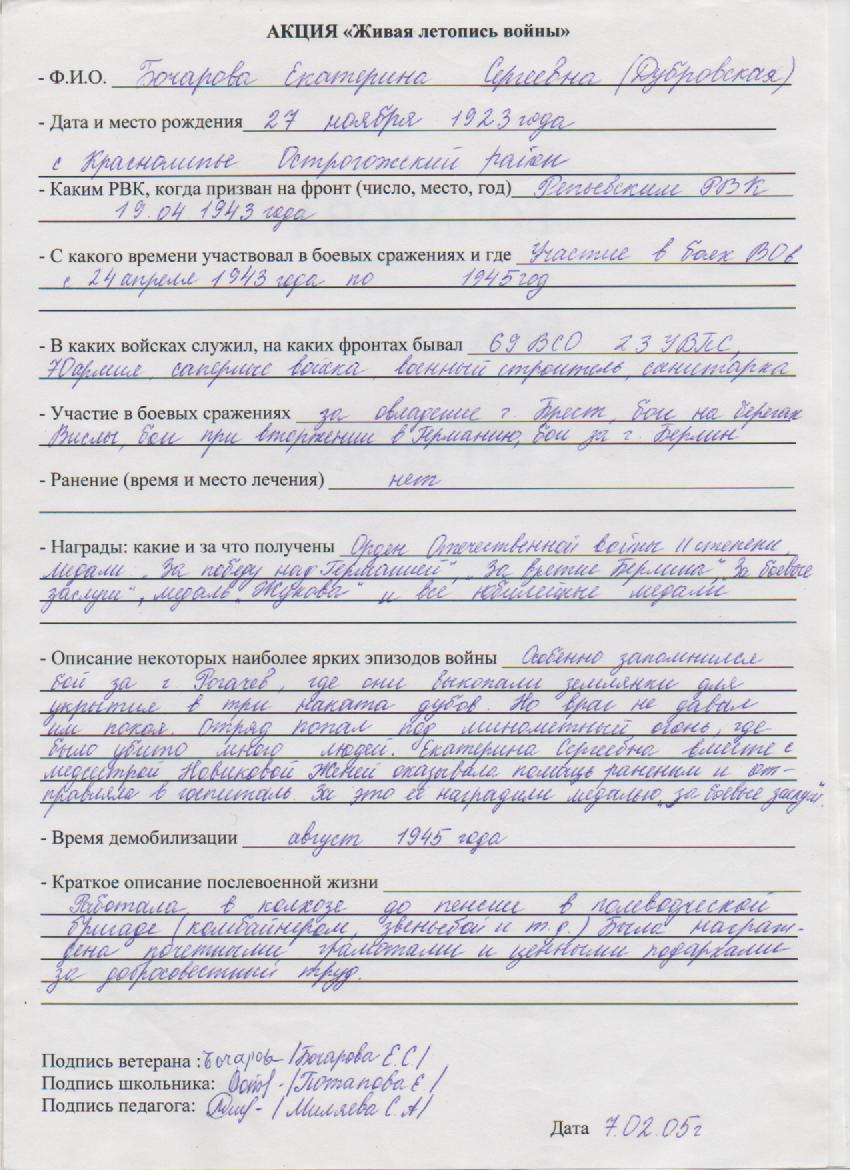 АКЦИЯ «Живая летопись войны»
- Ф.И.О. Бочарова Екатерина Сергеевна (Дубровская)
- Дата и место рождения 27 ноября 1923 года
с Краснолипье Острогожский район
- Каким РВК, когда призван на фронт (число, место, год) Репьевским РВК
19.04 1943 года
- С какого времени участвовал в боевых сражениях и где Участие в боях ВОв
с 24 апреля 1943 года по 1945 год
- В каких войсках служил, на каких фронтах бывал 69 ВСО 23 УВПС,
70 армия, саперные войска, военный строитель, санитарка
- Участие в боевых сражениях за овладение г. Брест, бои на берегах
Вислы, бои при вторжении в Германию, бои за г. Берлин
- Ранение (время и место лечения) нет
- Награды: какие и за что получены Орден Отечественной войны II степени,
медали „За победу над Германией", „За взятие Берлина" „За боевые
заслуги", медаль „Жукова" и все юбилейные медали
- Описание некоторых наиболее ярких эпизодов войны Особенно запомнился
бой за г Рогачев, где они выкопали землянки для
укрытия в три наката дубов. Но враг не давал
им покоя. Отряд попал под минометный огонь, где
было убито много людей. Екатерина Сергеевна вместе с
медсестрой Новиковой Женей оказывала помощь раненим и от-
правляла в госпиталь. За это её наградили медалью „за боевые заслуги".
- Время демобилизации август 1945 года
- Краткое описание послевоенной жизни
Работала в колхозе до пенсии в полеводческой
бригаде (комбайнером, звеньевой и т.д.) Была награж-
дена почетными грамотами и ценными подарками
за добросовестный труд.
Подпись ветерана : Бочарова /Бочарова Е.С/
Подпись школьника: /Потапова Е/
Подпись педагога: /Миляева С.А/
Дата 7.02.05г